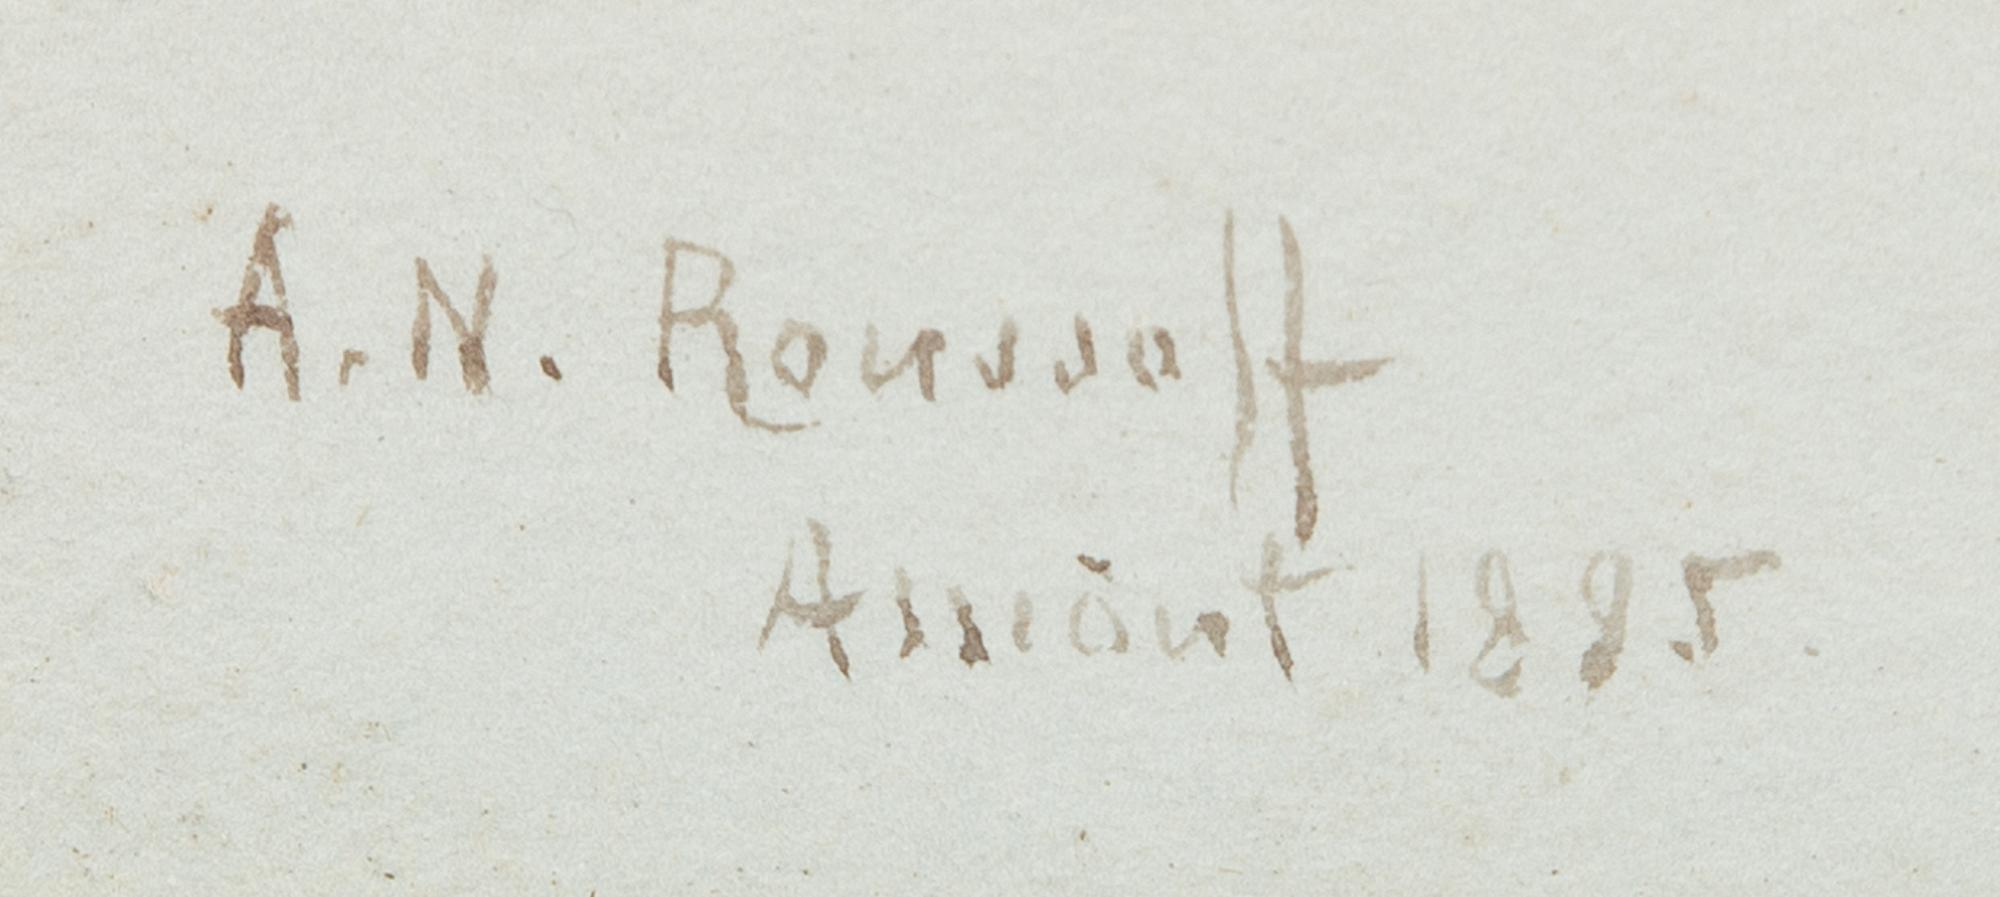 A. N. Roussoff
Assiout 1895.